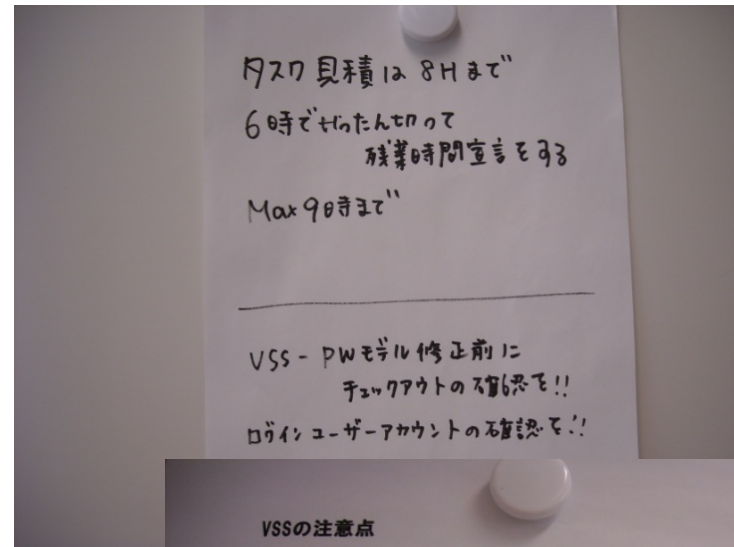 タスク見積は8Hまで
6時でいったん切って
残業時間宣言をする
Max 9時まで
VSS - PWモデル修正前に
チェックアウトの確認を!!
ログインユーザーアカウントの確認を!!
VSSの注意点